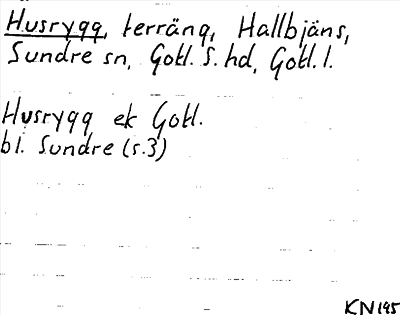 Husrygg, terräng, Hallbjäns,
Sundre sn, Gotl. S. hd, Gotl. l.
Husrygg ek Gotl.
bl. Sundre (s.3)
KN 195